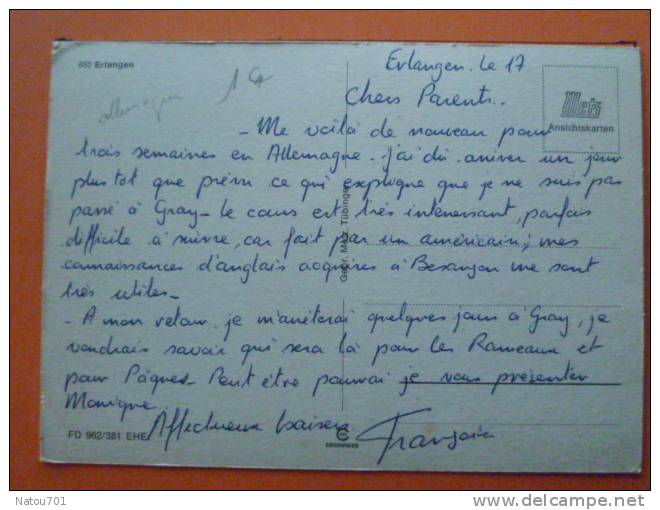 852 Erlangen
allemagne
1 €
Erlangen. Le 17
Metz
Ansichtskarten
Chers Parents.
- Me voilà de nouveau pour
trois semaines en Allemagne. J'ai dû arriver un jour
plus tôt que prévu ce qui explique que je ne suis pas
passé à Gray - Le cours est très interessant, parfois
difficile à suivre, car fait par un américain; mes
connaissances d'anglais acquises à Besançon me sont
très utiles -
- A mon retour je m'arrêterai quelques jours à Gray, je
voudrais savoir qui sera là pour les Rameaux et
pour Pâques - Peut être pourrai je vous présenter
Monique
Affectueux baisers
François
Gebr. Metz, Tübingen
FD 962/381 EHE
Natou701
http://www.delcampe.net